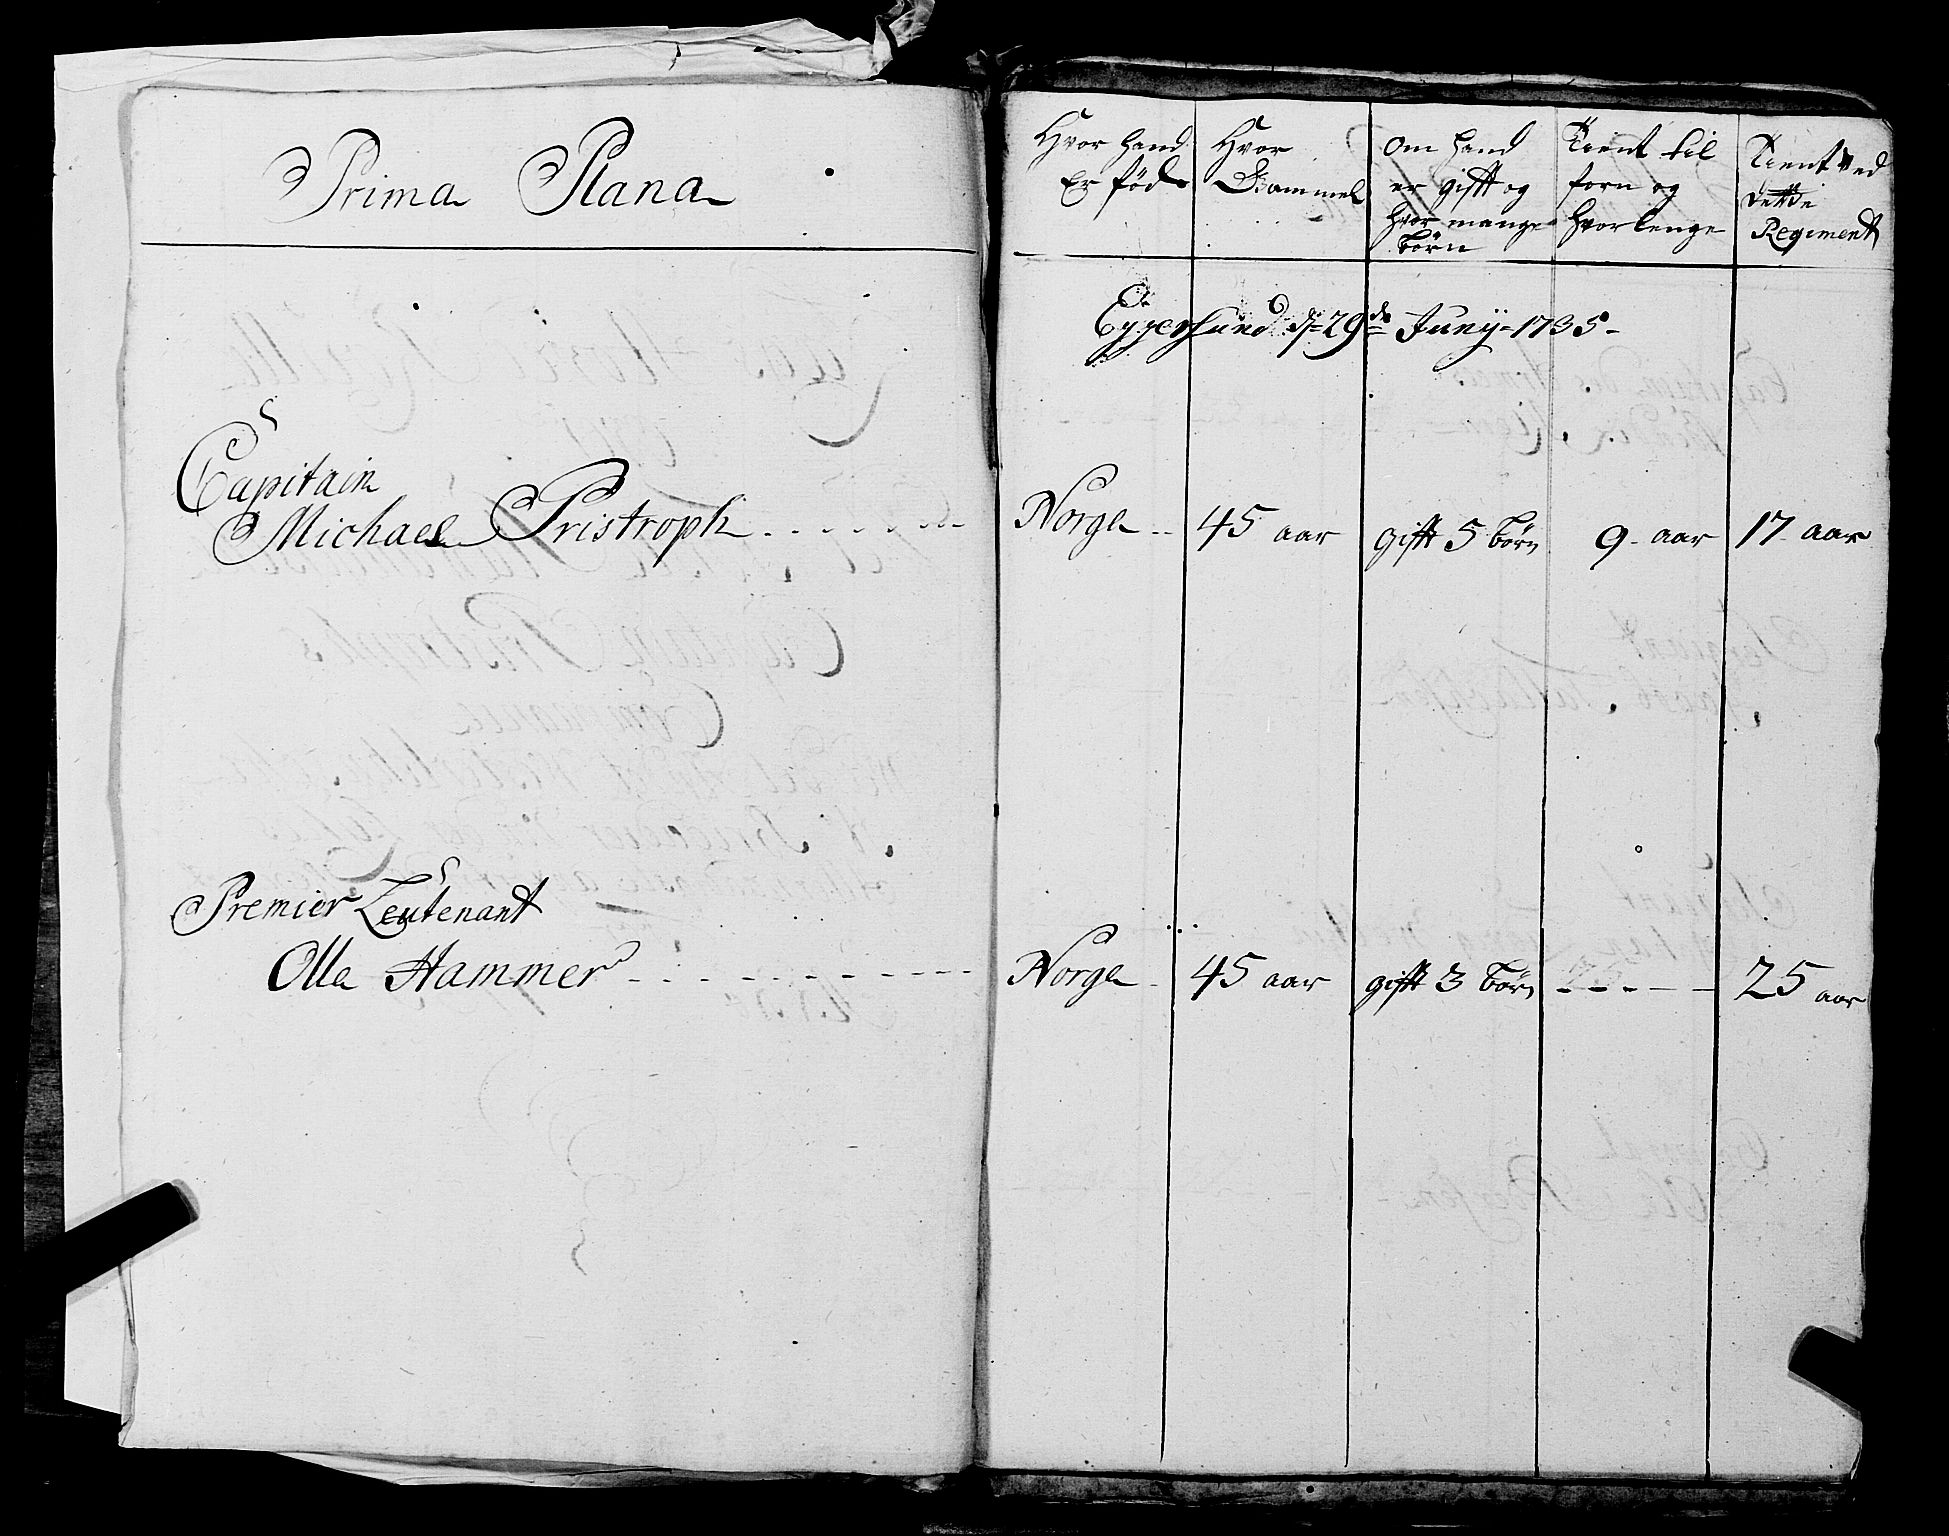 Prima Plana
Hvor hand
Er föd
Hvor
Gammel
om hand
er gifft og
hvor mange
börn
Tient til
forn og
hvor lenge
Tient ved
dette
Regiment
Eggersund d 29de Juny 1735
Capitain
Michael Pristroph
Norge
45 aar
gifft 5 börn
9 aar
17 aar
Premier Leutenant
Olle Hammer
Norge
45 aar
gifft 3 börn
25 aar